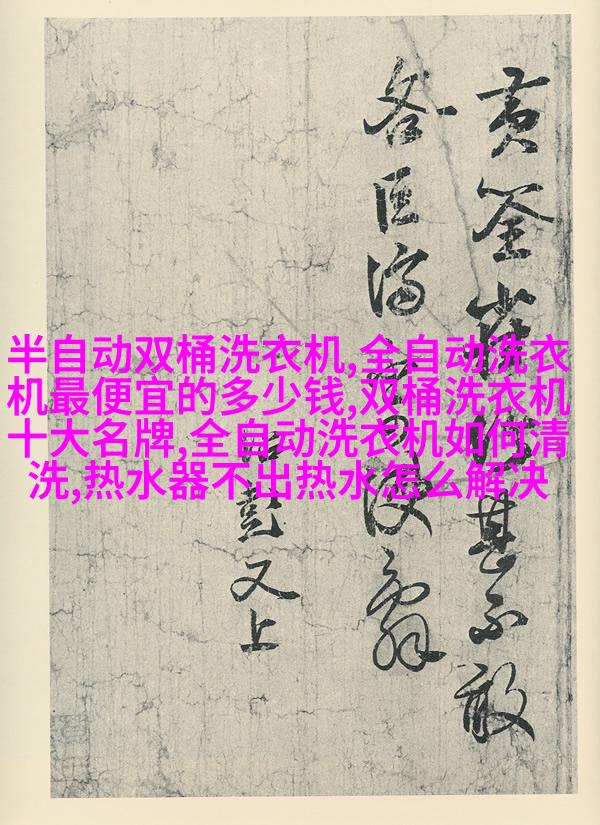 半自动双桶洗衣机,全自动洗衣
机最便宜的多少钱,双桶洗衣机
十大名牌,全自动洗衣机如何清
洗,热水器不出热水怎么解决
黄筌甚不敢
又上